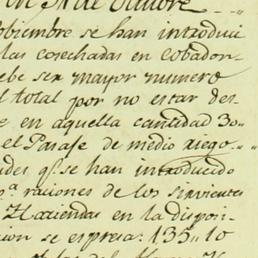 en 31 de Octubre
obiembre se han introduci
las cosechadas en cobadon-
ebe ser mayor numero
l total por no estar des
e en aquella cantidad 30-
el Parage de medio riego.
udes q.e se han introducido
p.a raciones de los sirvientes
Haciendas en la dispoi-
cion se expresa: 135"10